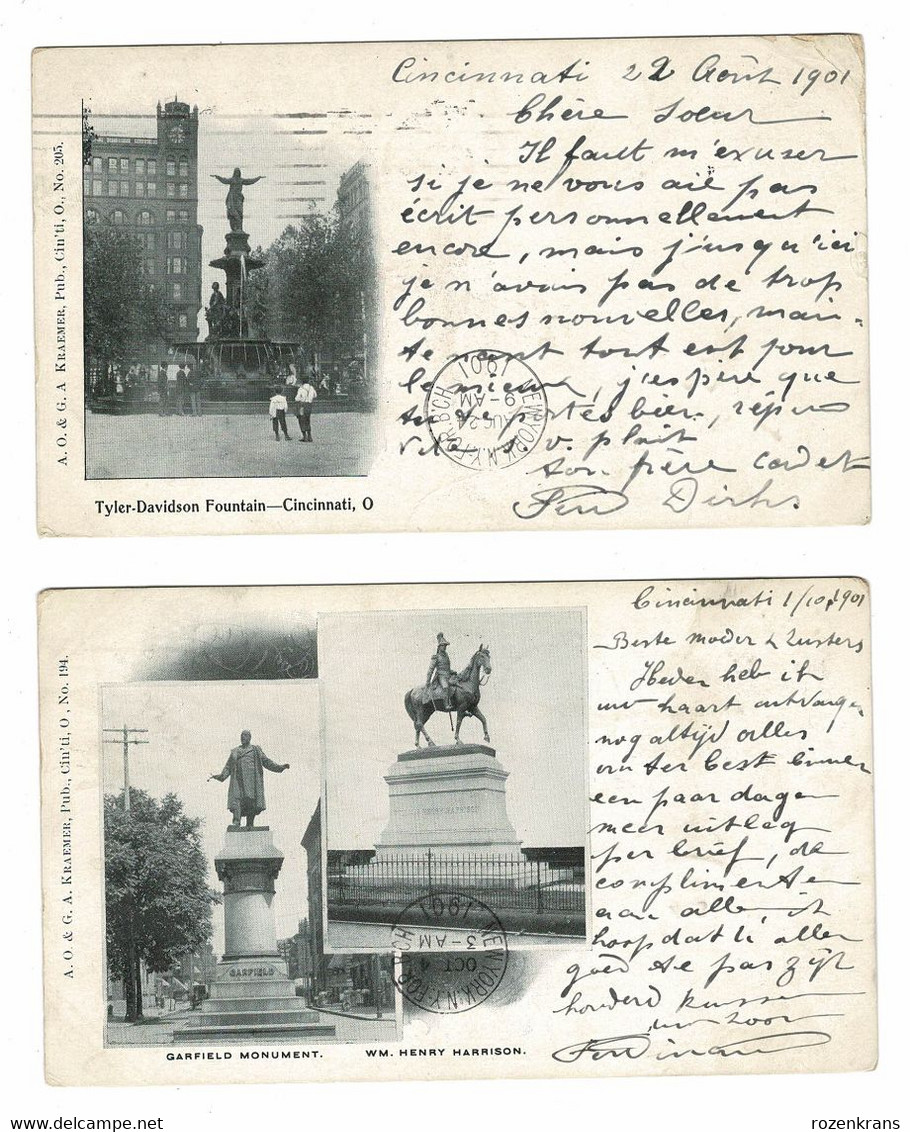 Cincinnati 22 Août 1901
Chère Soeur
Il fault m'exuser
si je ne vous aie pas
écrit personnellement
encore, mais j'usqu'ici
je n'avais pas de trop
bonnes nouvelles, main-
tenant tout est pour
le mieux, j'espère que
tu te portes bien, répons
vite s. v. plait
ton frère cadet
Dirks
A. O. & G. A KRAEMER, Pub., Cin'ti, O., No. 205.
NEW YORK, N.Y. FOR. B'CH
AUG 24
9-AM
1901
Tyler-Davidson Fountain—Cincinnati, O
Cincinnati 1/10, 1901
Beste moder & Zusters
Heden heb ik
uw kaart ontvangen
nog altijd alles
om ter best binnen
een paar dagen
meer uitleg
per brief, de
complimenten
aan allen, ik
hoop dat U allen
goed te pas zijt
honderd kussen
uw zoon
Ferdinand
A. O. & G. A. KRAEMER, Pub., Cin'ti, O, No. 194.
GARFIELD
HENRY HARRISON
NEW YORK, N.Y. FOR. B'CH
OCT 4
3-AM
1901
GARFIELD MONUMENT.
WM. HENRY HARRISON.
rozenkrans